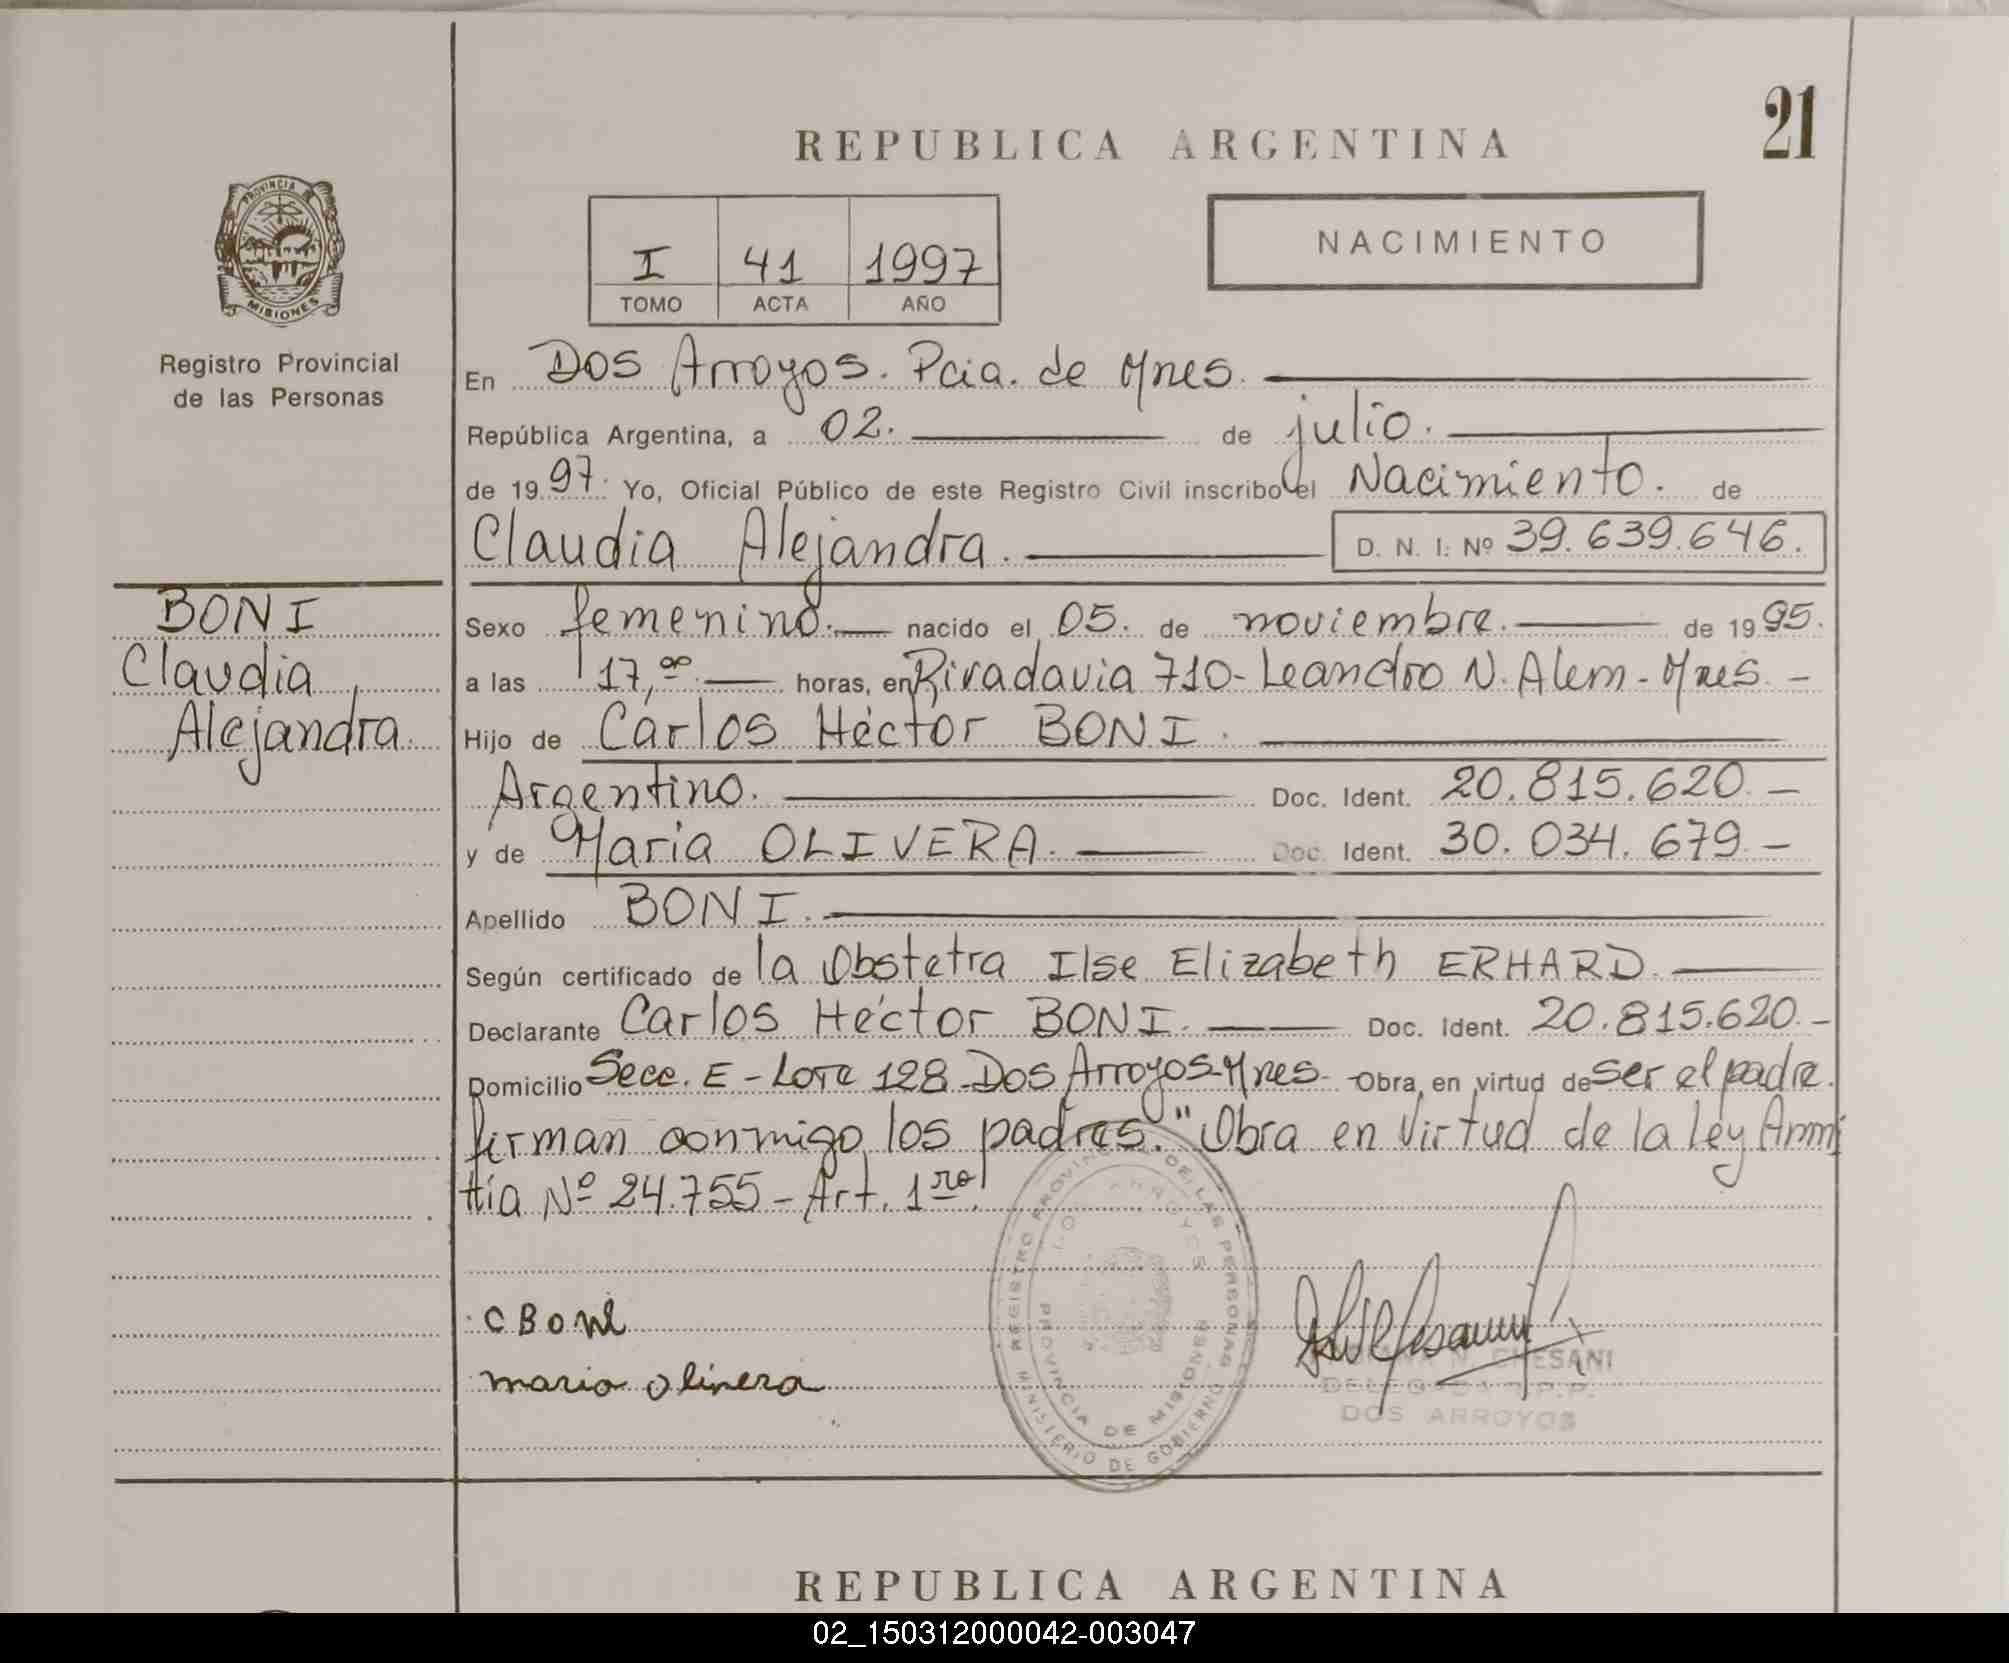 21
REPUBLICA ARGENTINA
I 41 1997
TOMO ACTA AÑO
NACIMIENTO
PROVINCIA DE
MISIONES
Registro Provincial
de las Personas
En Dos Arroyos. Pcia. de Mnes.
República Argentina, a 02. de julio.
de 1997. Yo, Oficial Público de este Registro Civil inscribo el Nacimiento. de
Claudia Alejandra. D. N. I. Nº 39.639.646.
BONI
Claudia
Alejandra.
Sexo femenino. nacido el 05. de noviembre. de 1995.
a las 17,00. horas, en Rivadavia 710 - Leandro N. Alem - Mnes. -
Hijo de Carlos Héctor BONI.
Argentino. Doc. Ident. 20.815.620. -
y de Maria OLIVERA. Doc. Ident. 30.034.679 -
Apellido BONI.
Según certificado de la Obstetra Ilse Elizabeth ERHARD.
Declarante Carlos Héctor BONI. Doc. Ident. 20.815.620. -
Domicilio Secc. E - Lote 128 - Dos Arroyos - Mnes - Obra en virtud de ser el padre.
firman conmigo los padres. "Obra en Virtud de la Ley Amni
tía Nº 24.755 - Art. 1ro.
C Boni
maria olinera
REGISTRO PROVINCIAL DE LAS PERSONAS
MINISTERIO DE GOBIERNO
DOS ARROYOS
PROVINCIA DE MISIONES
N. CHESANI
DELEGADA R.P.P.
DOS ARROYOS
REPUBLICA ARGENTINA
02_150312000042-003047